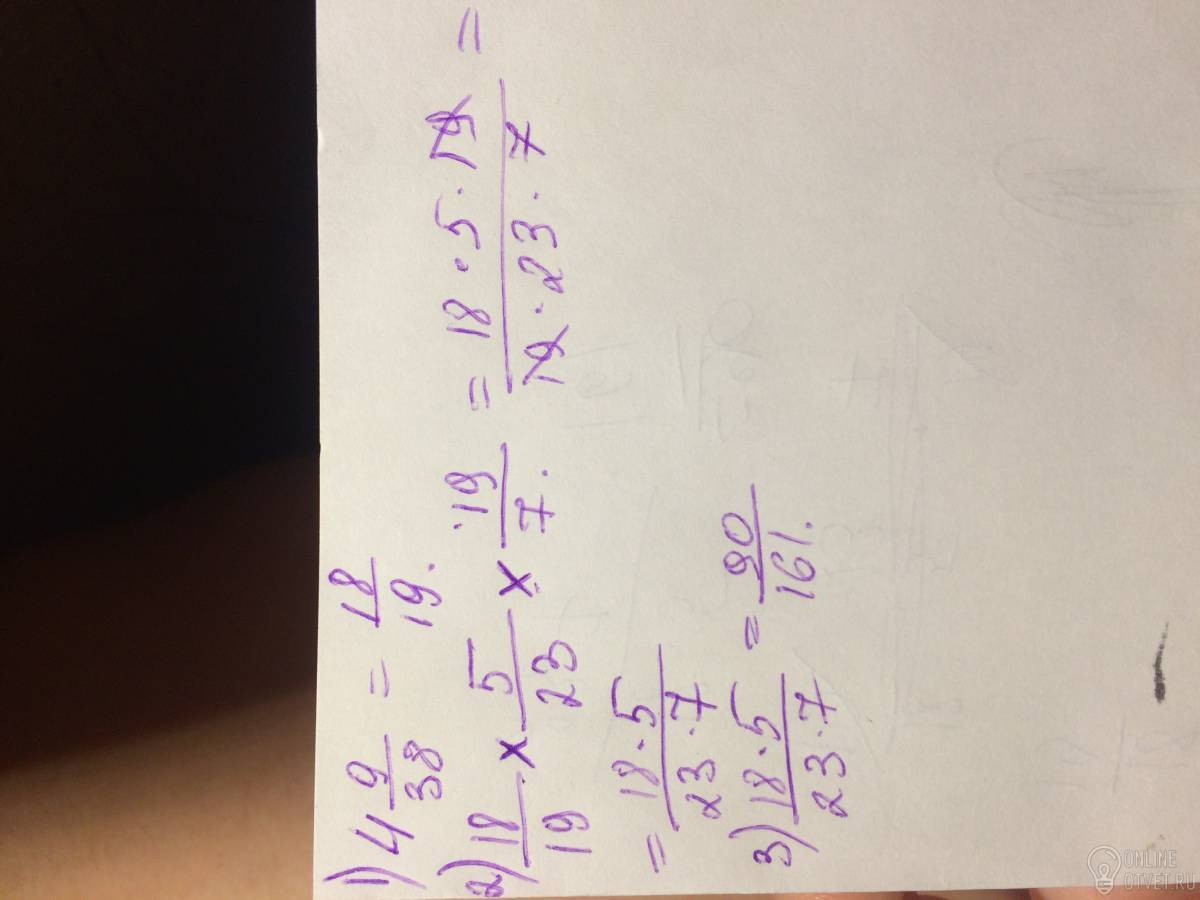 1) 4 9/38 = 18/19.
2) 18/19 × 5/23 × 19/7. = 18·5·19/19·23·7 =
= 18·5/23·7
3) 18·5/23·7 = 90/161.
ONLINE
OTVET.RU